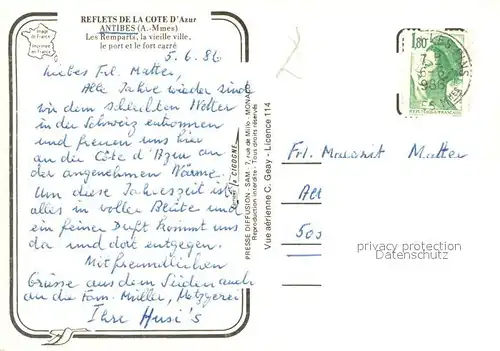 REFLETS DE LA COTE D'Azur
ANTIBES (A.-Mmes)
Les Remparts, la vieille ville,
le port et le fort carré
5.6.86
Liebes Frl. Matter,
Alle Jahre wieder sind
wir dem schlechten Wetter
in der Schweiz entronnen
und freuen uns hier
an der Côte d'Azur an
der angenehmen Wärme.
Um diese Jahreszeit ist
alles in voller Blüte und
ein feiner Duft kommt uns
da und dort entgegen.
Mit freundlichen
Grüsse aus dem Süden auch
an die Fam. Müller, Metzgerei
Ihre Husi's
la CIGOGNE
PRESSE DIFFUSION - SAM - 7, rue de Millo - MONACO
Reproduction interdite - Tous droits réservés
Vue aérienne C. Geay - Licence 114
1,80
Frl. Matter
500
privacy protection
Datenschutz